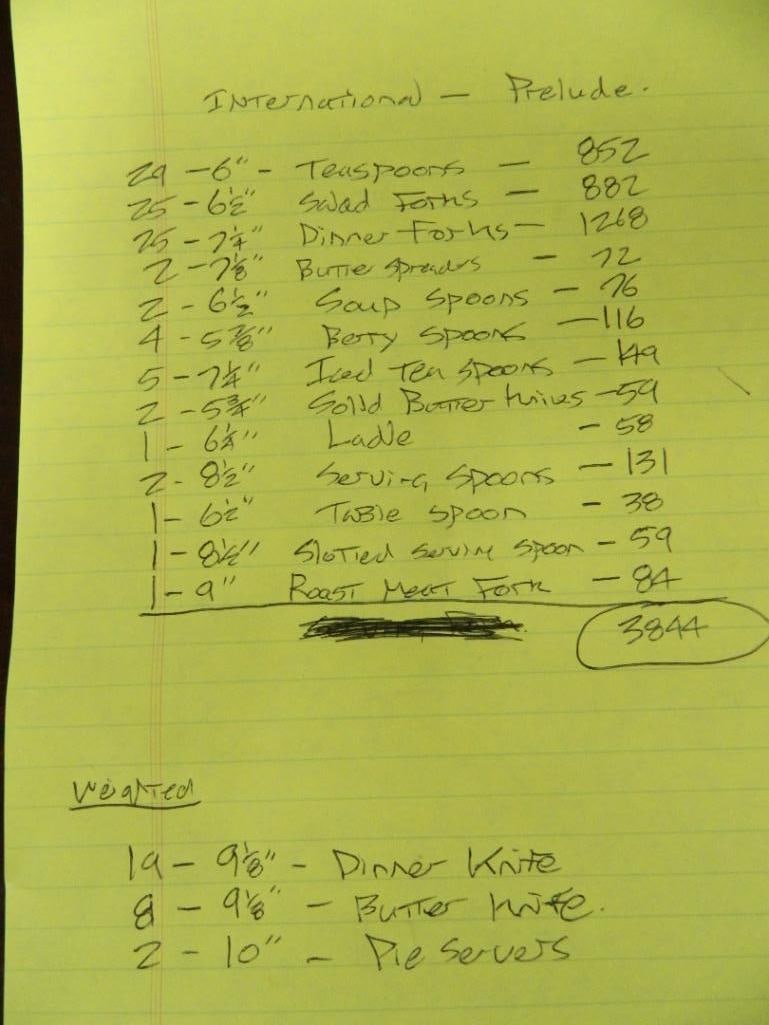 International - Prelude.
29 - 6" - Teaspoons - 852
25 - 6½" Salad Forks - 882
25 - 7¼" Dinner Forks - 1268
2 - 7⅛" Butter spreaders - 72
2 - 6½" Soup Spoons - 76
4 - 5⅞" Berry Spoons - 116
5 - 7¼" Iced Tea spoons - 149
2 - 5¾" Solid Butter Knives - 59
1 - 6¼" Ladle - 58
2 - 8½" Serving Spoons - 131
1 - 6½" Table Spoon - 38
1 - 8½" Slotted Serving Spoon - 59
1 - 9" Roast Meat Fork - 84
3844
Weighted
19 - 9⅛" - Dinner Knife
8 - 9⅛" - Butter Knife.
2 - 10" - Pie Servers